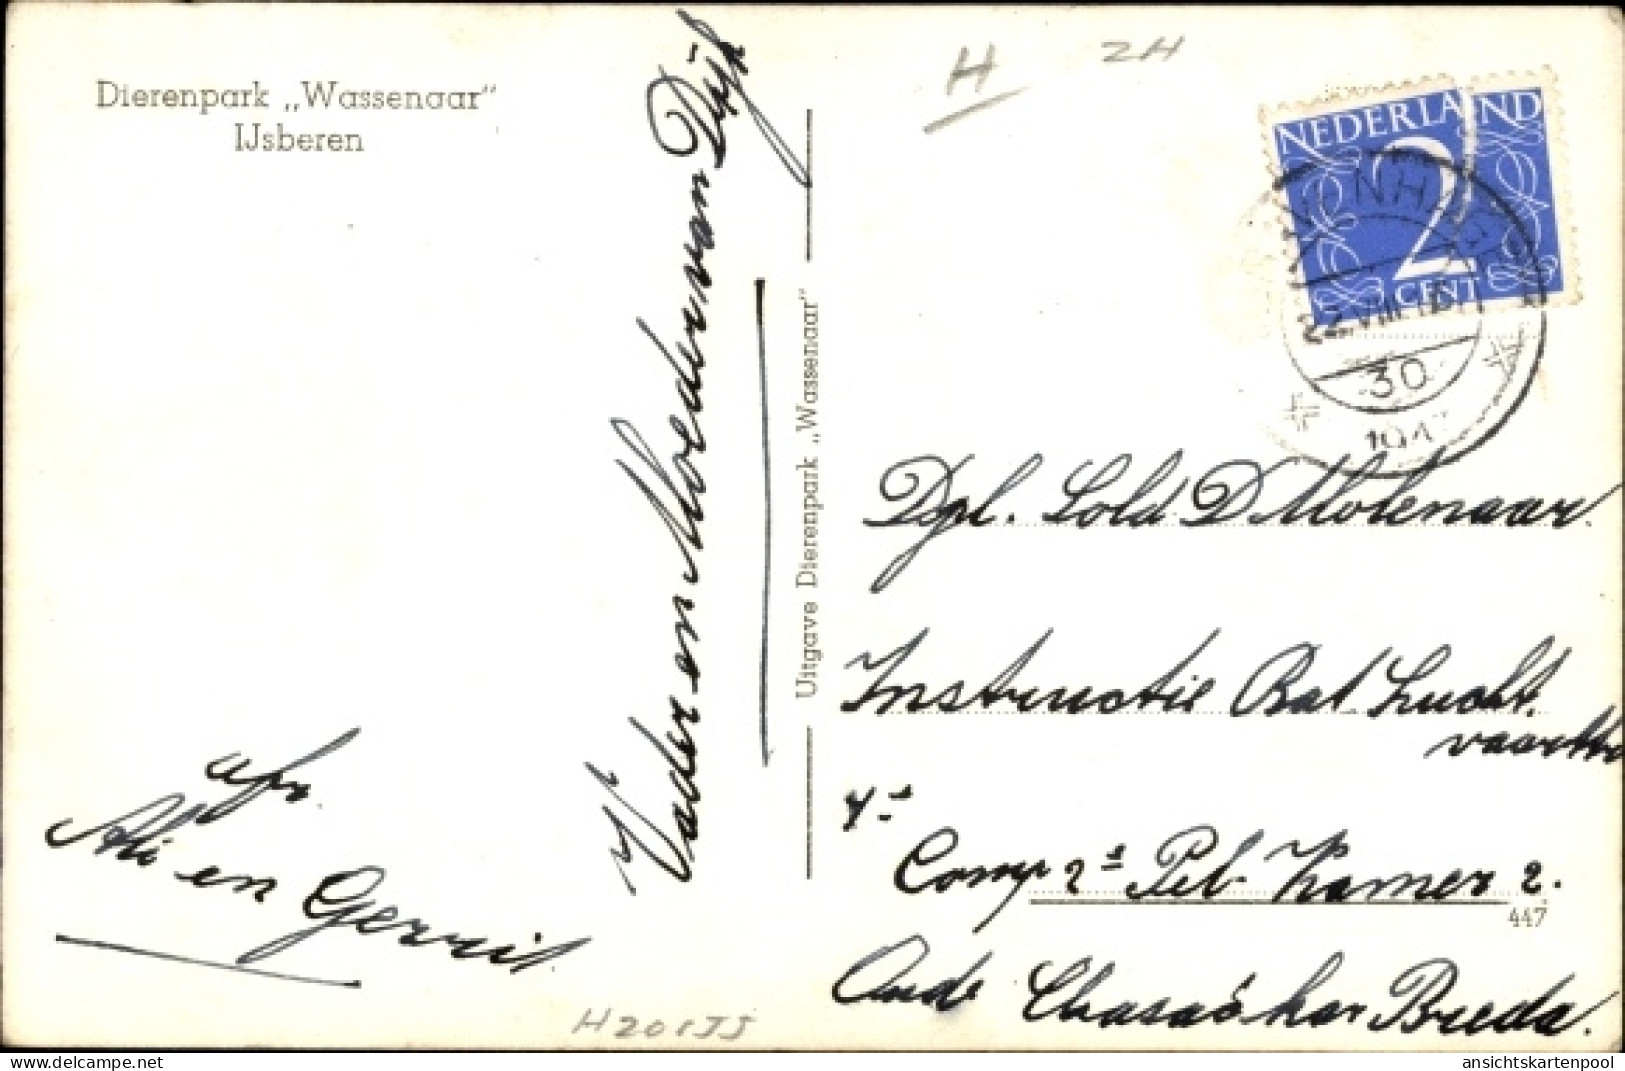 Dierenpark „Wassenaar”
IJsberen
H
2H
NEDERLAND
2
CENT
30
Vader en Moeder van Duyf
Uitgave Dierenpark „Wassenaar”
Dpl. Sold D Molenaar.
Instructie Bat Lucht.
vaarttr
4e
Comp 2e Pel Kamer 2.
447
Oude Chassé kar Breda.
afz
Ali en Gerrit.
H201JJ
delcampe.net
ansichtskartenpool